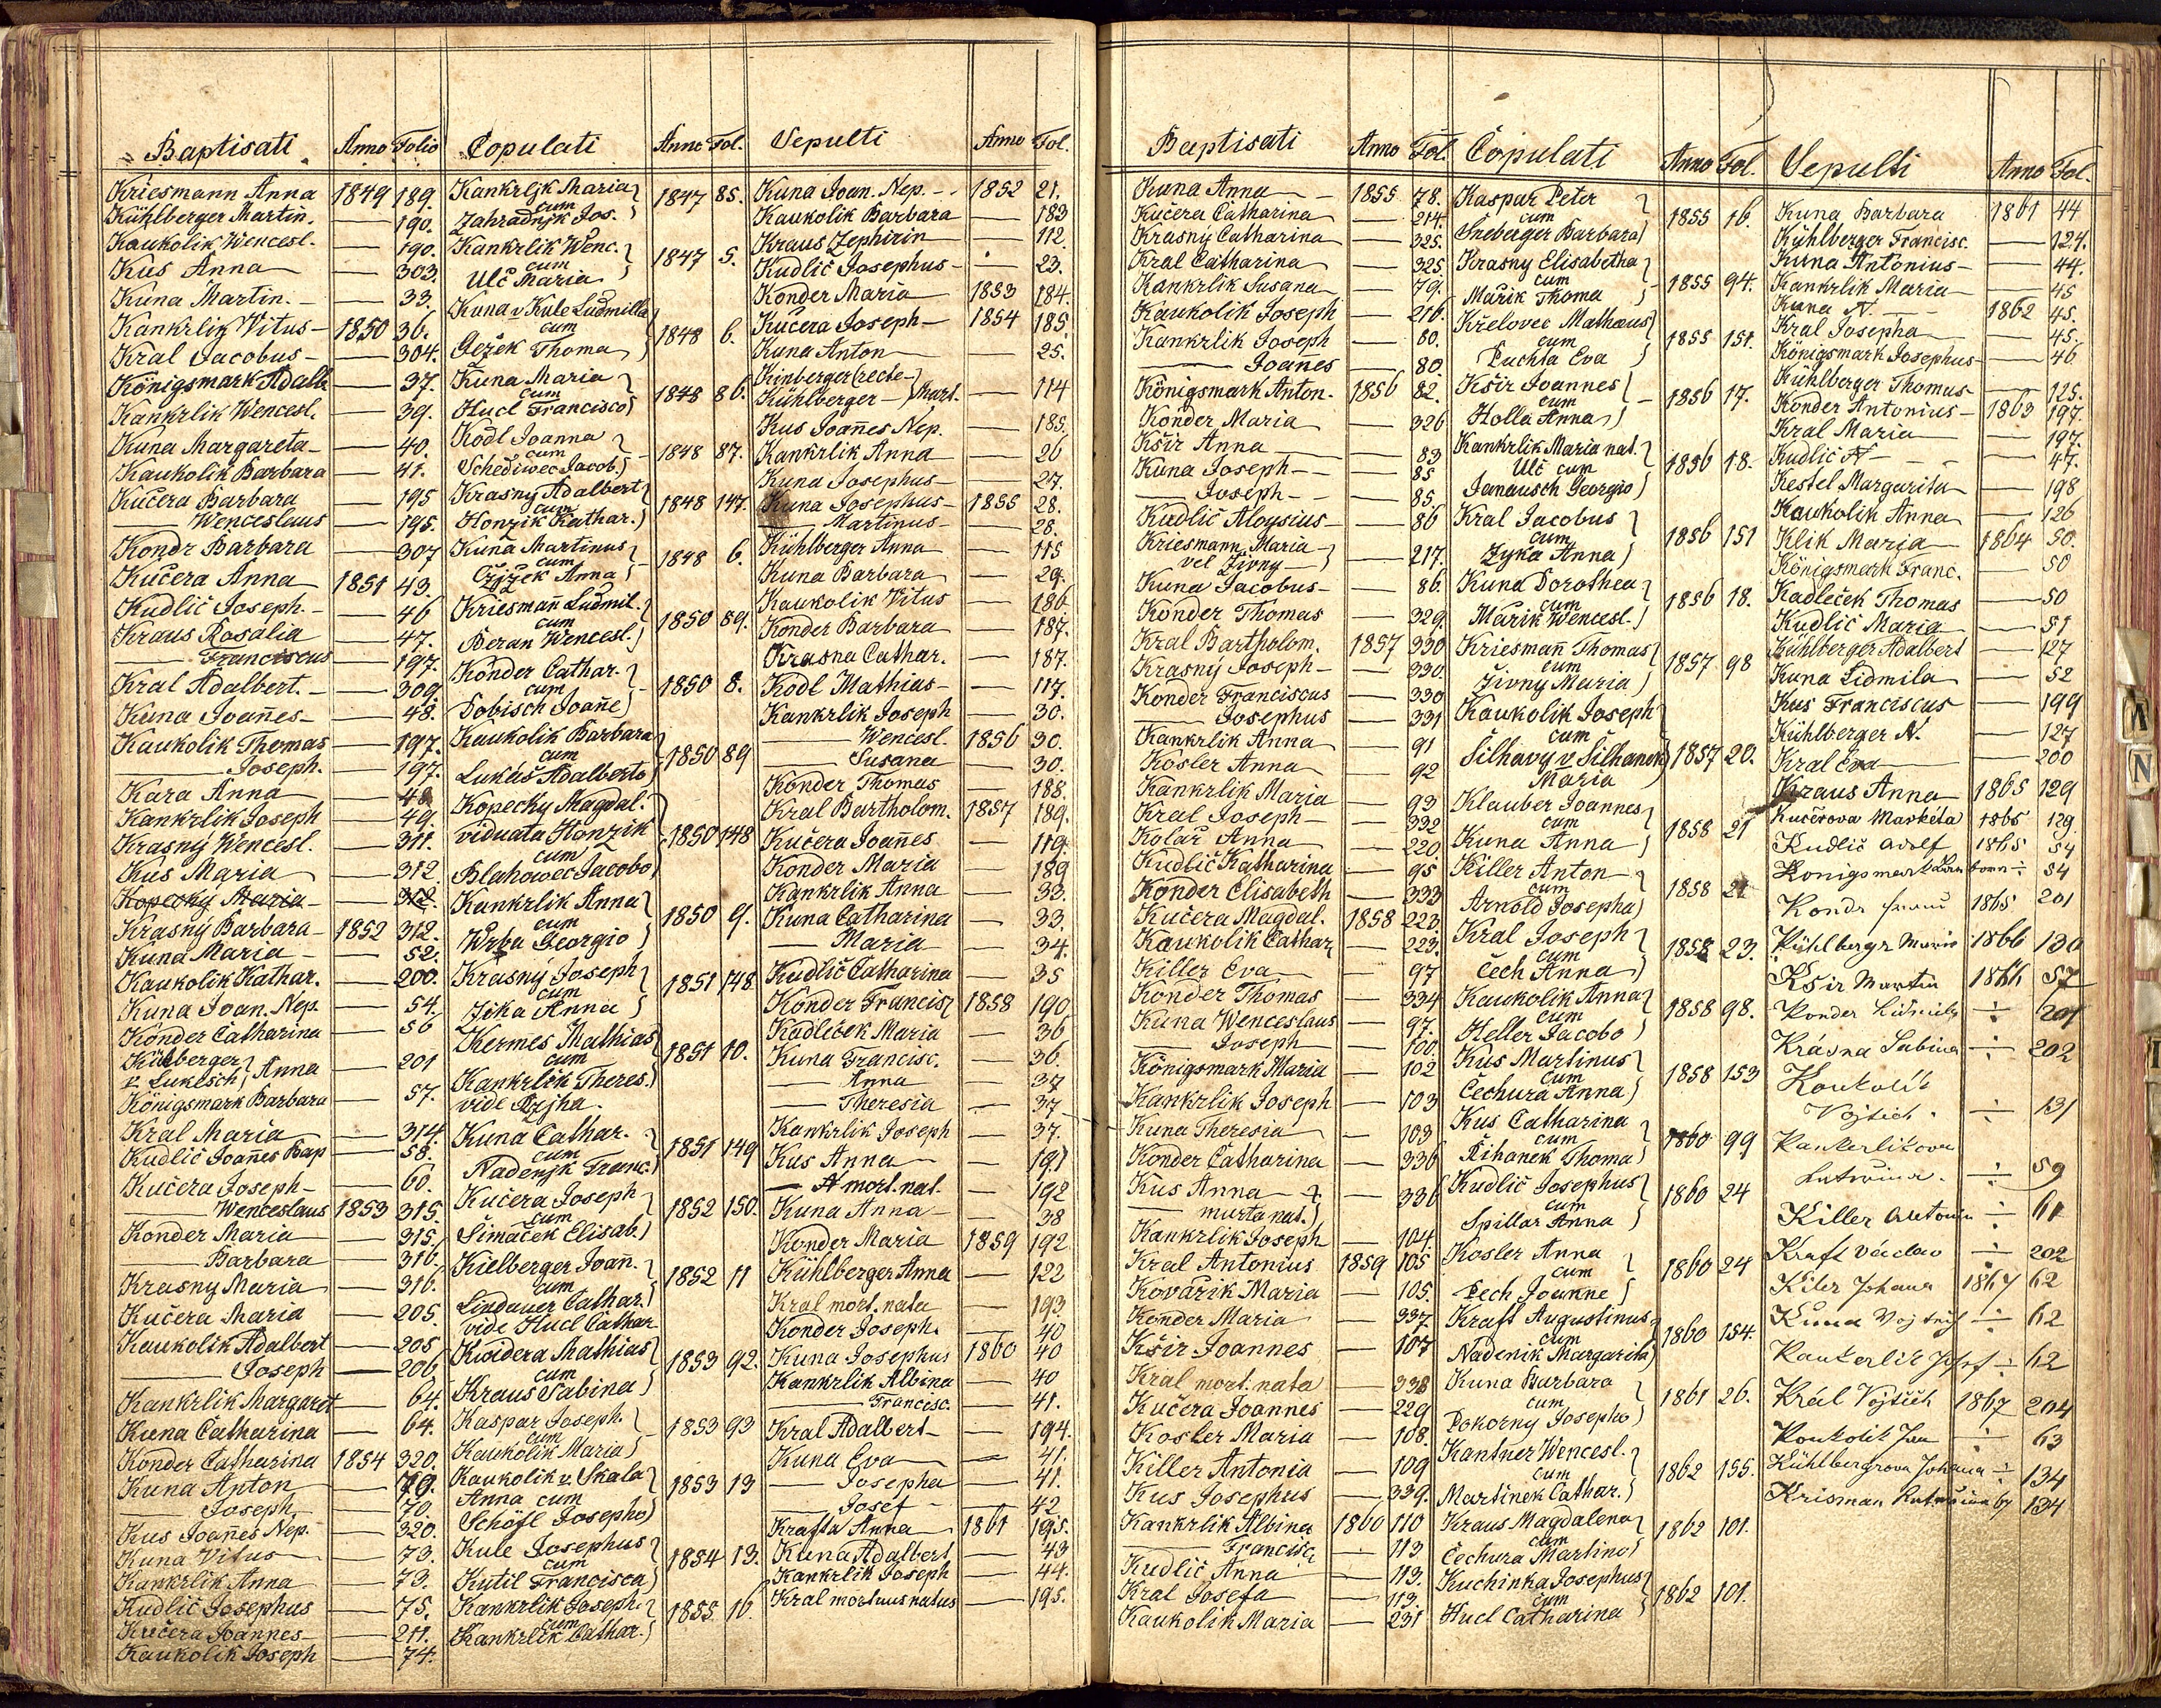 Baptisati Anno Folio
Kriesmann Anna 1849 189.
Kühlberger Martin. — 190.
Kaukolik Wencesl. — 190.
Kus Anna — 303.
Kuna Martin. — 33.
Kankrlik Vitus — 1850 36.
Kral Jacobus — 304.
Königsmark Adalb — 37.
Kankrlik Wencesl. — 39.
Kuna Margareta — 40.
Kaukolik Barbara — 41.
Kučera Barbara — 195
— Wenceslaus — 195.
Kondr Barbara — 307
Kučera Anna 1851 43.
Kudlič Joseph. — 46
Kraus Rosalia — 47.
— Franciscus — 197.
Kral Adalbert. — 309.
Kuna Joañes — 48.
Kaukolik Thomas — 197.
— Joseph. — 197.
Kara Anna — 48
Kankrlik Joseph — 49.
Krasný Wencesl. — 311.
Kus Maria — 312
Kopecký Maria — 312.
Krasný Barbara — 1852 312.
Kuna Maria — 52.
Kaukolik Kathar. — 200.
Kuna Joan. Nep. — 54.
Konder Catharina — 56
Kühlberger
v. Lukesch } Anna — 201
Königsmark Barbara — 57.
Kral Maria — 314.
Kudlič Joañes Bap — 58.
Kučera Joseph — 60.
— Wenceslaus 1853 315.
Konder Maria — 315.
— Barbara — 316.
Krasny Maria — 316.
Kučera Maria — 205.
Kaukolik Adalbert — 205
— Joseph — 206
Kankrlik Margaret — 64.
Kuna Catharina — 64.
Konder Catharina 1854 320.
Kuna Anton — 70.
— Joseph — 70.
Kus Joañes Nep. — 320.
Kuna Vitus — 73.
Kankrlik Anna — 73.
Kudlič Josephus — 75.
Kučera Joannes — 211.
Kaukolik Joseph — 74.
Copulati Anno Fol.
Kankrljk Maria
cum
Zahradnjk Jos. } 1847 85.
Kankrlik Wenc.
cum
Ulč Maria } 1847 5.
Kuna v Kule Ludmilla
cum
Gežek Thoma } 1848 6.
Kuna Maria
cum
Hucl Francisco } 1848 86.
Kodl Joanna
cum
Schediwec Jacob. } 1848 87.
Krasny Adalbert
cum
Honzik Kathar. } 1848 147.
Kuna Martinus
cum
Čžjžek Anna } 1848 6.
Kriesmañ Ludmil.
cum
Beran Wencesl. } 1850 89.
Konder Cathar.
cum
Dobisch Joañe } 1850 8.
Kaukolik Barbara
cum
Lukáš Adalberto } 1850 89
Kopecky Magdal.
viduata Honzik
cum
Blahowec Jacobo } 1850 148
Kankrlik Anna
cum
Wrba Georgio } 1850 9.
Krasný Joseph
cum
Zika Anna } 1851 148.
Kermes Mathias
cum
Kankrlik Theres. } 1851 10.
vide Rzjha.
Kuna Cathar.
cum
Nadenjk Franc. } 1851 149
Kučera Joseph
cum
Simaček Elisab. } 1852 150.
Kielberger Joañ.
cum
Lindauer Cathar. } 1852 11
vide Hucl Cathar
Kwidera Mathias
cum
Kraus Sabina } 1853 92.
Kaspar Joseph.
cum
Kaukolik Maria } 1853 93
Kaukolik v. Skala
Anna cum
Schöfl Josepho } 1853 13
Kule Josephus
cum
Kutil Francisca } 1854 13.
Kankrlik Joseph.
cum
Kankrlik Cathar. } 1855. 16.
Sepulti Anno Fol.
Kuna Joan. Nep. 1852 21.
Kaukolik Barbara — 183
Kraus Zephirin — 112.
Kudlič Josephus — 23.
Konder Maria 1853 184.
Kučera Joseph — 1854 185.
Kuna Anton — 25.
Kinberger (recte
Kühlberger } Mart. — 114
Kus Joañes Nep. — 185.
Kankrlik Anna — 26
Kuna Josephus — 27.
Kuna Josephus — 1855 28.
— Martinus — 28.
Kühlberger Anna — 115
Kuna Barbara — 29.
Kaukolik Vitus — 186.
Konder Barbara — 187.
Krasna Cathar. — 187.
Kodl Mathias — 117.
Kankrlik Joseph — 30.
— Wencesl. 1856 30.
— Susana — 30.
Konder Thomas — 188.
Kral Bartholom. 1857 189.
Kučera Joañes — 119.
Konder Maria — 189
Kankrlik Anna — 33.
Kuna Catharina — 33.
— Maria — 34.
Kudlič Catharina — 35
Konder Francis 1858 190
Kadleček Maria — 36
Kuna Francisc. — 36.
— Anna — 37
— Theresia — 37
Kankrlik Joseph — 37.
Kus Anna — 191
— N mort. nat. — 192
Kuna Anna — 38
Konder Maria 1859 192
Kühlberger Anna — 122
Kral mort. nata — 193
Konder Joseph. — 40
Kuna Josephus 1860 40
Kankrlik Albina — 40
— Francisc. — 41.
Kral Adalbert — 194.
Kuna Eva — 41.
— Josepha — 41.
— Josef — 42
Krafta Anna 1861 195.
Kuna Adalbert — 43
Kankrlik Joseph — 44.
Kral mortuus natus — 195.
Baptisati Anno Fol.
Kuna Anna — 1855 78.
Kučera Catharina — 214.
Krasný Catharina — 325.
Kral Catharina — 325.
Kankrlik Susana — 79.
Kaukolik Joseph — 216.
Kankrlik Joseph — 80.
— Joañes — 80.
Königsmark Anton. 1856 82.
Konder Maria — 326
Kšir Anna — 83
Kuna Joseph — 85
— Joseph — 85.
Kudlič Aloysius — 86
Kriesmann Maria
vel Živny } — 217.
Kuna Jacobus — 86.
Konder Thomas — 329.
Kral Bartholom. 1857 330
Krasný Joseph — 330.
Konder Franciscus — 330
— Josephus — 331
Kankrlik Anna — 91
Kosler Anna — 92
Kankrlik Maria — 93
Kral Joseph — 332
Kolář Anna — 220.
Kudlič Katharina — 95
Konder Elisabeth — 333
Kučera Magdal. 1858 223.
Kaukolik Cathar — 223.
Killer Eva — 97
Konder Thomas — 334
Kuna Wenceslaus — 97.
— Joseph — 100.
Königsmark Maria — 102
Kankrlik Joseph — 103
Kuna Theresia — 103
Konder Catharina — 336
Kus Anna — 336
— murta nat.
Kankrlik Joseph — 104
Kral Antonius 1859 105
Kovařik Maria — 105.
Konder Maria — 337
Kšir Joannes — 107
Kral mort. nata — 338
Kučera Joannes — 229
Kosler Maria — 108.
Killer Antonia — 109
Kus Josephus — 339.
Kankrlik Albina 1860 110
— Francisc — 113
Kudlič Anna — 113.
Kral Josefa — 113.
Kaukolik Maria — 231
Copulati Anno Fol.
Kaspar Peter
cum
Sneberger Barbara } 1855 16.
Krasny Elisabetha
cum
Mařik Thoma } 1855 94.
Křelovec Mathæus
cum
Puchta Eva } 1855 151.
Kšir Joannes
cum
Holla Anna } 1856 17.
Kankrlik Maria nat.
Ulč cum
Janausch Georgio } 1856 18.
Kral Jacobus
cum
Zyka Anna } 1856 151
Kuna Dorothea
cum
Mařik Wencesl. } 1856 18.
Kriesmañ Thomas
cum
Živny Maria } 1857 98
Kaukolik Joseph
cum
Šilhavy v Šilhanek
Maria } 1857 20.
Klauber Joannes
cum
Kuna Anna } 1858 21
Killer Anton
cum
Arnold Josepha } 1858 21
Kral Joseph
cum
Čech Anna } 1858 23.
Kaukolik Anna
cum
Heller Jacobo } 1858 98.
Kus Martinus
cum
Čechura Anna } 1858 153
Kus Catharina
cum
Řihanek Thoma } 1860 99
Kudlič Josephus
cum
Spillar Anna } 1860 24
Kosler Anna
cum
Pech Joanne } 1860 24
Kraft Augustinus
cum
Nadenik Margarita } 1860 154.
Kuna Barbara
cum
Pokorny Josepho } 1861 26.
Kantner Wencesl.
cum
Martinek Cathar. } 1862 155.
Kraus Magdalena
cum
Čechura Martino } 1862 101.
Kuchinka Josephus
cum
Hucl Catharina } 1862 101.
Sepulti Anno Fol.
Kuna Barbara 1861 44
Kühlberger Francisc. — 124.
Kuna Antonius — 44.
Kankrlik Maria — 45
Kuna N. 1862 45.
Kral Josepha — 45.
Königsmark Josephus — 46
Kühlberger Thomas — 125.
Konder Antonius — 1863 197
Kral Maria — 197.
Kudlič N — 47.
Kestel Margarita — 198
Kaukolik Anna — 126
Klik Maria 1864 50.
Königsmark Franc. — 50
Kadleček Thomas — 50
Kudlič Maria — 51
Kühlberger Adalbert — 127
Kuna Lidmila — 52
Kus Franciscus — 199
Kühlberger N. — 127
Kral Eva — 200
Kraus Anna 1865 129
Kučerova Markéta 1865 129.
Kudlič Adolf 1865 54
Konigsmark ÷ 54
Kondr 1865 201
Kühlbergr Marie 1866 130
Kšír Martin 1866 57
Konder Lidmila ÷ 201
Krásna Sabina ÷ 202
Koukolík
Vojtěch. ÷ 131
Kankerlikova
Kateřina. ÷ 59
Killer Antonin ÷ 61
Kraft Václav ÷ 202
Kiler Johana 1867 62
Kuna Vojtěch ÷ 62
Kankerlik Josef ÷ 62
Král Vojtěch 1867 204
Koukolik Jan ÷ 63
Kühlbergrova Johana ÷ 134
Krisman Kateřina 67 134